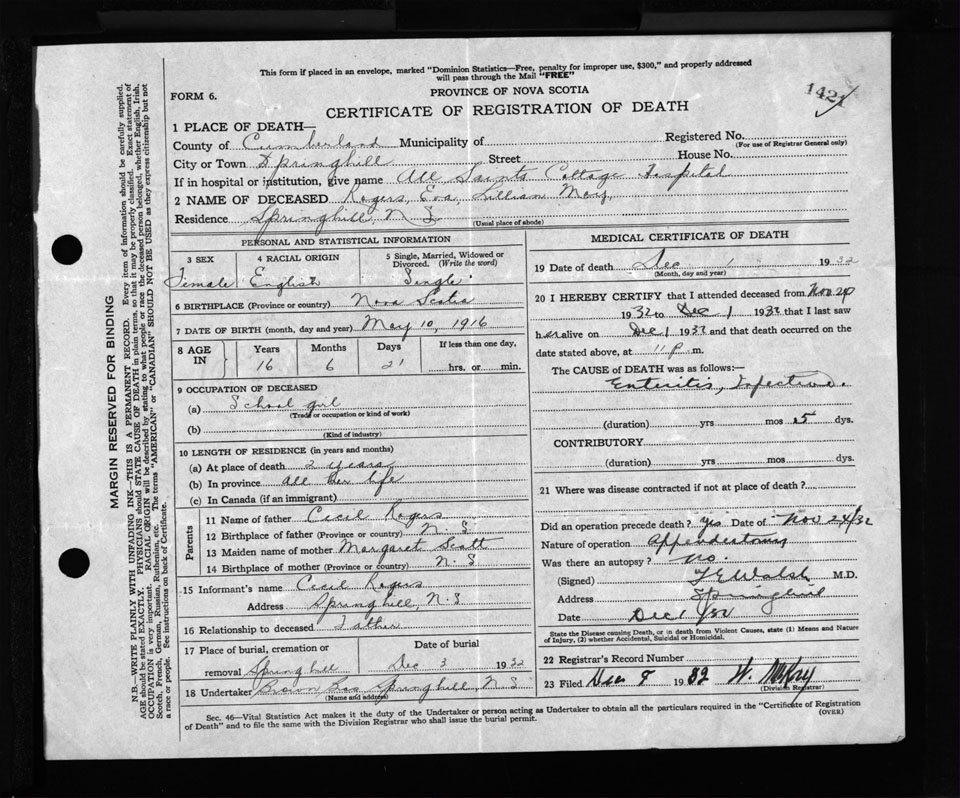 This form if placed in an envelope, marked "Dominion Statistics—Free, penalty for improper use, $300," and properly addressed
will pass through the Mail "FREE"
FORM 6.
PROVINCE OF NOVA SCOTIA
1421
CERTIFICATE OF REGISTRATION OF DEATH
1 PLACE OF DEATH—
County of Cumberland Municipality of Registered No.
(For use of Registrar General only)
City or Town Springhill Street House No.
If in hospital or institution, give name All Saints Cottage Hospital
2 NAME OF DECEASED Rogers, Eva, Lillian May,
Residence Springhill, N S
(Usual place of abode)
PERSONAL AND STATISTICAL INFORMATION
3 SEX 4 RACIAL ORIGIN 5 Single, Married, Widowed or
Divorced. (Write the word)
Female English Single
6 BIRTHPLACE (Province or country) Nova Scotia
7 DATE OF BIRTH (month, day and year) May 10, 1916
8 AGE
IN
Years Months Days If less than one day,
16 6 21 hrs. or min.
9 OCCUPATION OF DECEASED
(a) School girl
(Trade or occupation or kind of work)
(b)
(Kind of industry)
10 LENGTH OF RESIDENCE (in years and months)
(a) At place of death 2 years
(b) In province All her life
(c) In Canada (if an immigrant)
Parents
11 Name of father Cecil Rogers
12 Birthplace of father (Province or country) N. S
13 Maiden name of mother Margaret Scott
14 Birthplace of mother (Province or country) N. S
15 Informant's name Cecil Rogers
Address Springhill, N. S
16 Relationship to deceased Father
17 Place of burial, cremation or
removal Springhill Dec 3 1932
18 Undertaker Brown Bros Springhill, N S
(Name and address)
MEDICAL CERTIFICATE OF DEATH
19 Date of death Dec 1 1932
(Month, day and year)
20 I HEREBY CERTIFY that I attended deceased from Nov 24
1932 to Dec 1 1932 that I last saw
her alive on Dec 1 1932 and that death occurred on the
date stated above, at 11 p m.
The CAUSE of DEATH was as follows:—
Enteritis, Infectious.
(duration) yrs mos 5 dys.
CONTRIBUTORY
(duration) yrs mos dys.
21 Where was disease contracted if not at place of death?
Did an operation precede death? Yes Date of Nov 24/32
Nature of operation Appendectomy
Was there an autopsy? No.
(Signed) Walsh M.D.
Address Springhill
Date Dec 1/32
State the Disease causing Death, or in death from Violent Causes, state (1) Means and Nature
of Injury, (2) whether Accidental, Suicidal or Homicidal.
22 Registrar's Record Number
23 Filed Dec 8 1932 W. McKay
(Division Registrar)
Sec. 46—Vital Statistics Act makes it the duty of the Undertaker or person acting as Undertaker to obtain all the particulars required in the "Certificate of Registration
of Death" and to file the same with the Division Registrar who shall issue the burial permit.
(OVER)
MARGIN RESERVED FOR BINDING
N.B.—WRITE PLAINLY WITH UNFADING INK—THIS IS A PERMANENT RECORD. Every item of information should be carefully supplied.
AGE should be stated EXACTLY. PHYSICIANS should STATE CAUSE OF DEATH in plain terms, so that it may be properly classified. Exact statement of
OCCUPATION is very important. RACIAL ORIGIN will be described by stating to what people or race the deceased person belonged, whether English, Irish,
Scotch, French, German, Russian, Ruthenian, etc. The terms "AMERICAN" or "CANADIAN" SHOULD NOT BE USED as they express citizenship but not
a race or people. See instructions on back of Certificate.